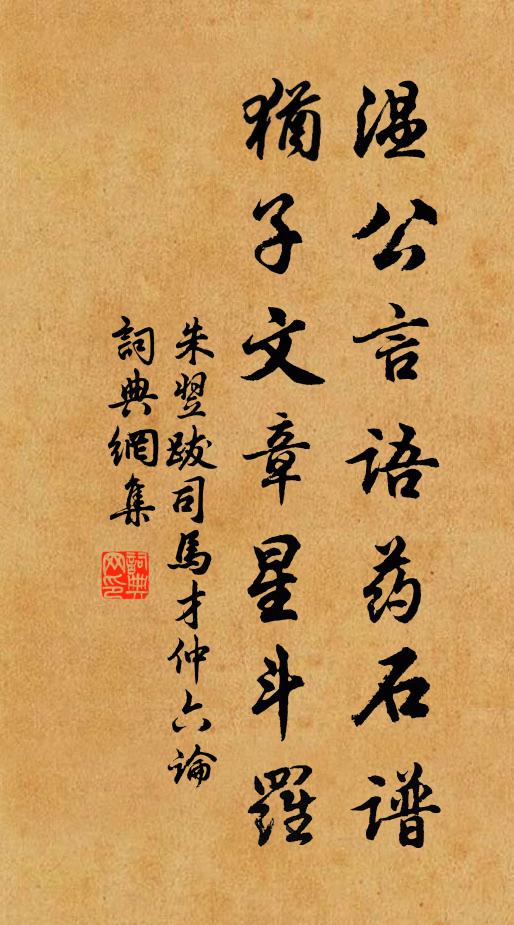 温公言语药石谱
犹子文章星斗羅
朱翌跋司馬才仲六論
詞典網集
詞典网印